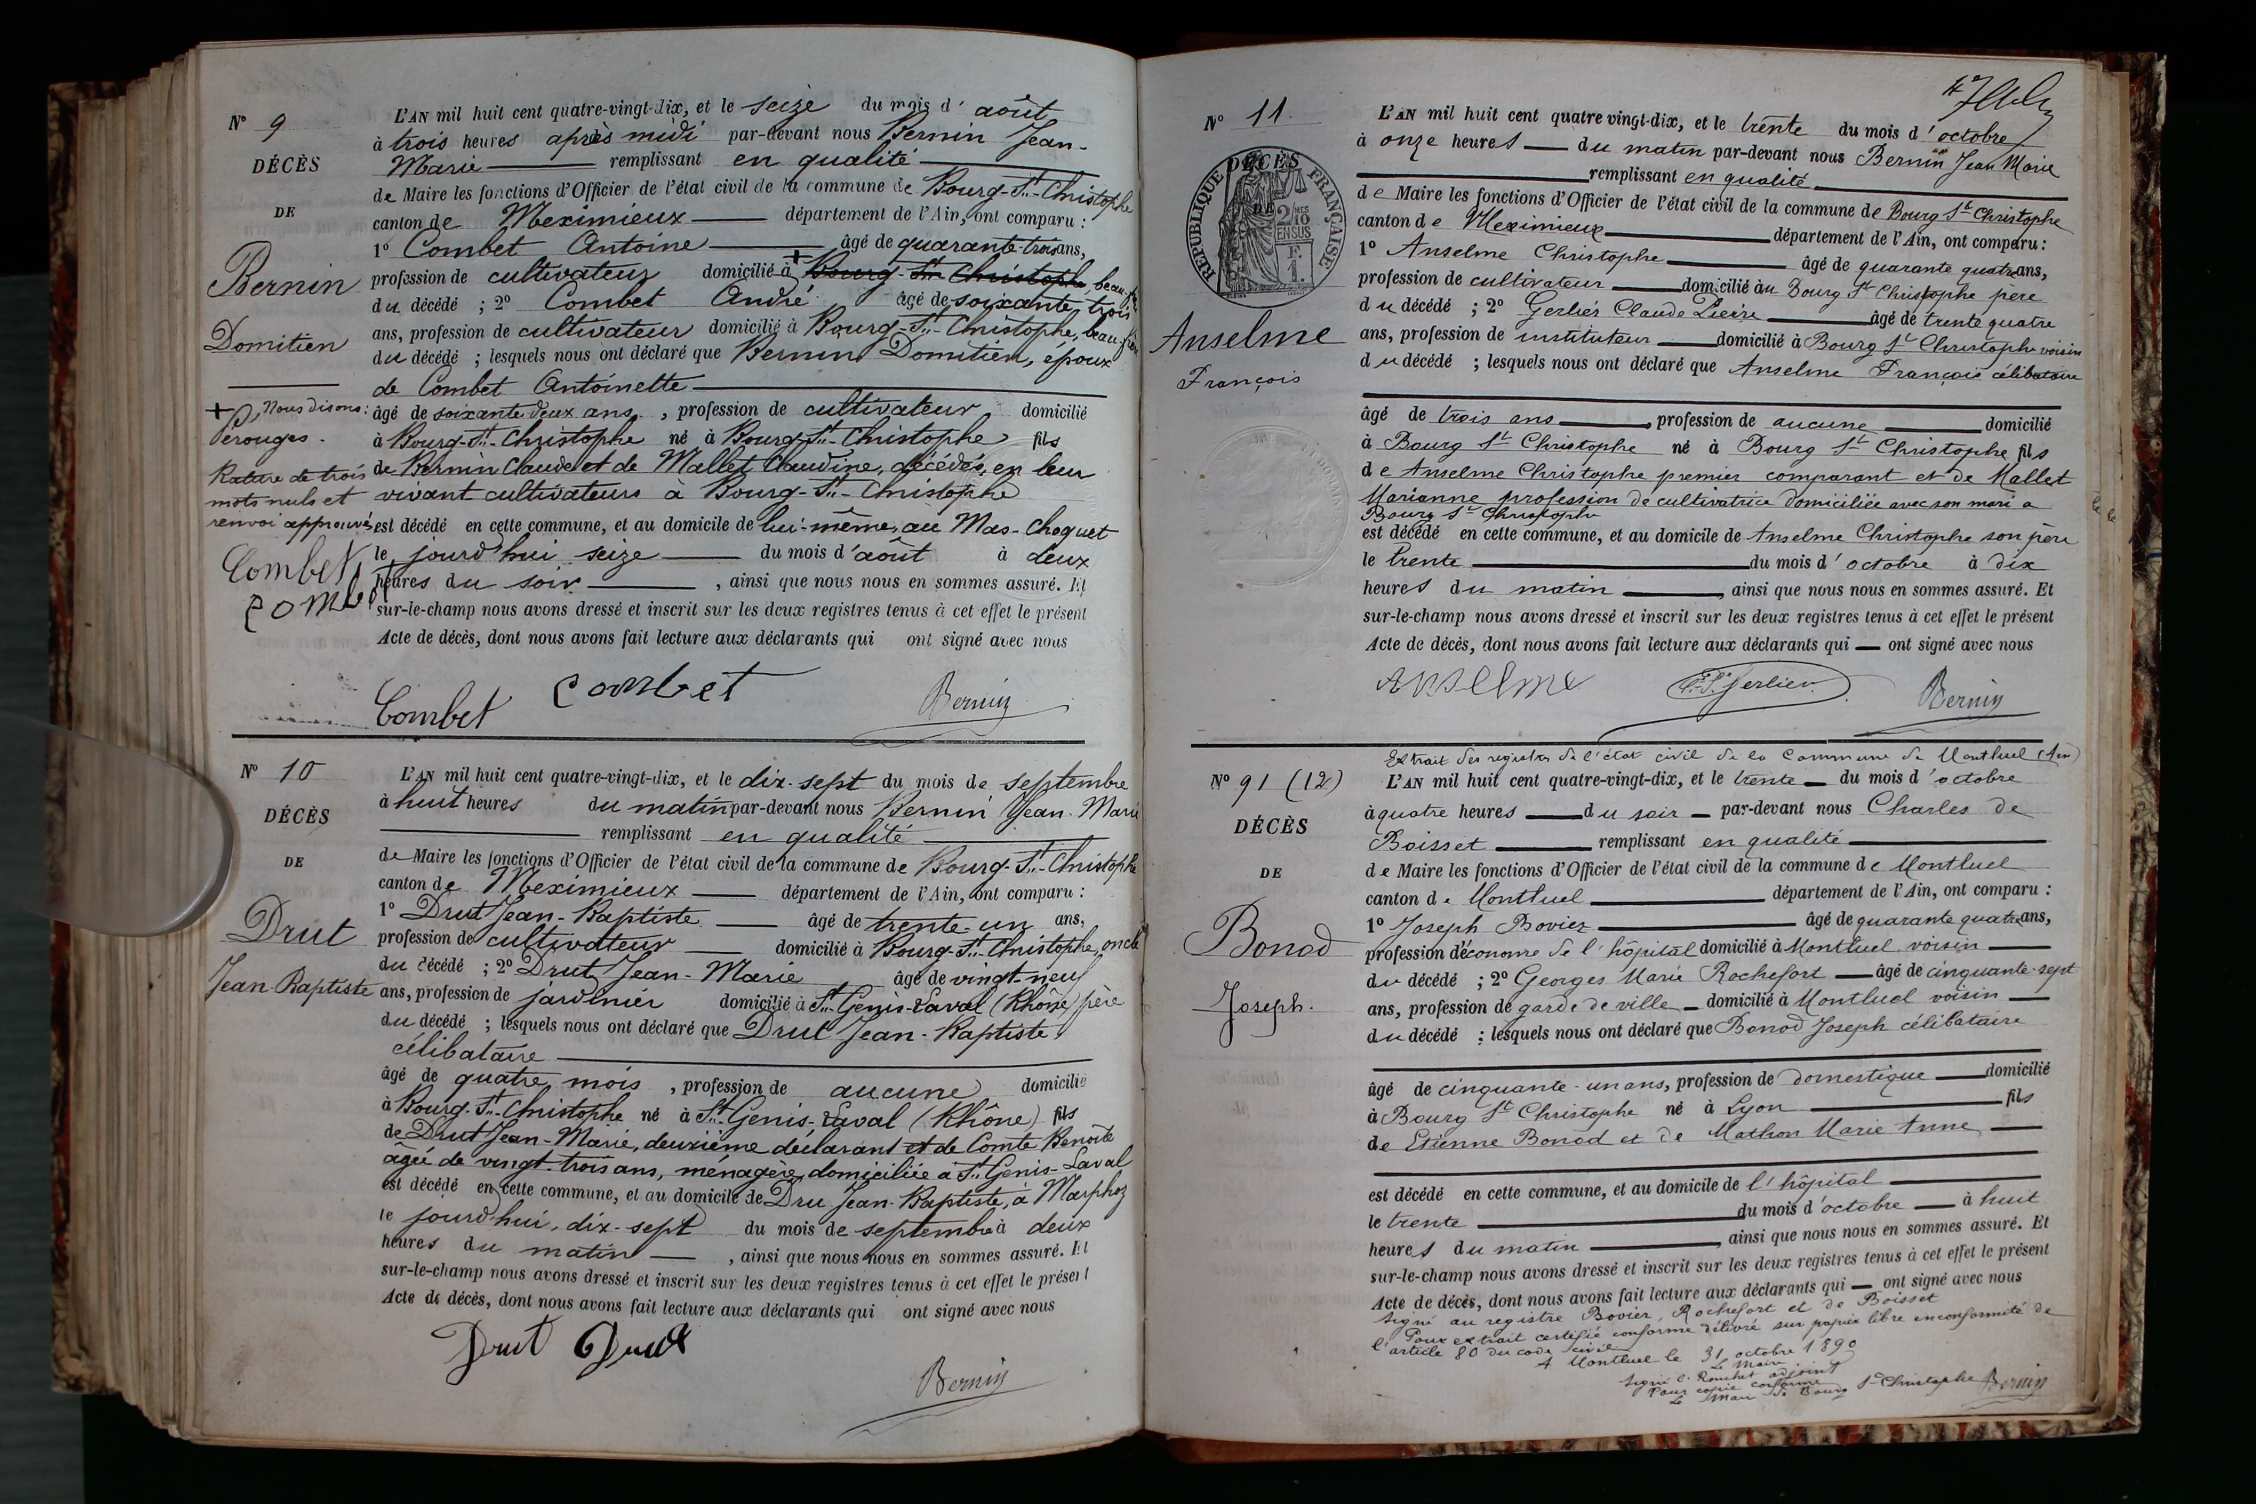 N° 9
DÉCÈS
DE
Bernin
Domitien
+ Nous disons:
Pérouges.
Rature de trois
mots nuls et
renvoi approuvé
Combet
Combet
L'AN mil huit cent quatre-vingt-dix, et le seize du mois d'août
à trois heures après midi par-devant nous Bernin Jean-
Marie remplissant en qualité
de Maire les fonctions d'Officier de l'état civil de la commune de Bourg-St-Christophe
canton de Meximieux département de l'Ain, ont comparu :
1° Combet Antoine âgé de quarante-trois ans,
profession de cultivateur domicilié à + Bourg-St-Christophe, beau-
du décédé ; 2° Combet André âgé de soixante-trois
ans, profession de cultivateur domicilié à Bourg-St-Christophe, beau-frère
du décédé ; lesquels nous ont déclaré que Bernin Domitien, époux
de Combet Antoinette
âgé de soixante deux ans, profession de cultivateur domicilié
à Bourg-St-Christophe né à Bourg-St-Christophe fils
de Bernin Claude et de Mallet Claudine, décédés, en leur
vivant cultivateurs à Bourg-St-Christophe
est décédé en cette commune, et au domicile de lui-même, au Mas-Choquet
le jourd'hui seize du mois d'août à deux
heures du soir, ainsi que nous nous en sommes assuré. Et
sur-le-champ nous avons dressé et inscrit sur les deux registres tenus à cet effet le présent
Acte de décès, dont nous avons fait lecture aux déclarants qui ont signé avec nous
Combet Combet Bernin
N° 10
DÉCÈS
DE
Drut
Jean-Baptiste
L'AN mil huit cent quatre-vingt-dix, et le dix-sept du mois de septembre
à huit heures du matin par-devant nous Bernin Jean-Marie
remplissant en qualité
de Maire les fonctions d'Officier de l'état civil de la commune de Bourg-St-Christophe
canton de Meximieux département de l'Ain, ont comparu :
1° Drut Jean-Baptiste âgé de trente-un ans,
profession de cultivateur domicilié à Bourg-St-Christophe, oncle
du décédé ; 2° Drut Jean-Marie âgé de vingt-neuf
ans, profession de jardinier domicilié à St-Genis-Laval (Rhône) père
du décédé ; lesquels nous ont déclaré que Drut Jean-Baptiste
célibataire
âgé de quatre mois, profession de aucune domicilié
à Bourg-St-Christophe né à St-Genis-Laval (Rhône) fils
de Drut Jean-Marie, deuxième déclarant et de Comte Benoîte
âgée de vingt-trois ans, ménagère, domiciliée à St-Genis-Laval
est décédé en cette commune, et au domicile de Dru Jean-Baptiste, à Marphoz
le jourd'hui, dix-sept du mois de septembre à deux
heures du matin, ainsi que nous nous en sommes assuré. Et
sur-le-champ nous avons dressé et inscrit sur les deux registres tenus à cet effet le présent
Acte de décès, dont nous avons fait lecture aux déclarants qui ont signé avec nous
Drut Drut
Bernin
N° 11.
DÉCÈS
DE
RÉPUBLIQUE FRANÇAISE
2/10 MES
EN SUS
F.
1.
Anselme
François
L'AN mil huit cent quatre vingt-dix, et le trente du mois d'octobre
à onze heures du matin par-devant nous Bernin Jean Marie
remplissant en qualité
de Maire les fonctions d'Officier de l'état civil de la commune de Bourg St Christophe
canton de Meximieux département de l'Ain, ont comparu :
1° Anselme Christophe âgé de quarante quatre ans,
profession de cultivateur domicilié au Bourg St Christophe père
du décédé ; 2° Gerlier Claude Pierre âgé de trente quatre
ans, profession de instituteur domicilié à Bourg St Christophe voisin
du décédé ; lesquels nous ont déclaré que Anselme François célibataire
âgé de trois ans, profession de aucune domicilié
à Bourg St Christophe né à Bourg St Christophe fils
de Anselme Christophe premier comparant et de Mallet
Marianne profession de cultivatrice domiciliée avec son mari a
Bourg St Christophe
est décédé en cette commune, et au domicile de Anselme Christophe son père
le trente du mois d'octobre à dix
heures du matin, ainsi que nous nous en sommes assuré. Et
sur-le-champ nous avons dressé et inscrit sur les deux registres tenus à cet effet le présent
Acte de décès, dont nous avons fait lecture aux déclarants qui ont signé avec nous
Anselme C.P. Gerlier Bernin
Extrait des registres de l'état civil de la Commune de Montluel (Ain)
N° 91 (12)
DÉCÈS
DE
Bonod
Joseph.
L'AN mil huit cent quatre-vingt-dix, et le trente du mois d'octobre
à quatre heures du soir par-devant nous Charles de
Boisset remplissant en qualité
de Maire les fonctions d'Officier de l'état civil de la commune de Montluel
canton de Montluel département de l'Ain, ont comparu :
1° Joseph Bovier âgé de quarante quatre ans,
profession d'économe de l'hôpital domicilié à Montluel voisin
du décédé ; 2° Georges Marie Rochefort âgé de cinquante-sept
ans, profession de garde de ville domicilié à Montluel voisin
du décédé ; lesquels nous ont déclaré que Bonod Joseph célibataire
âgé de cinquante-un ans, profession de domestique domicilié
à Bourg St Christophe né à Lyon fils
de Etienne Bonod et de Mathon Marie Anne
est décédé en cette commune, et au domicile de l'hôpital
le trente du mois d'octobre à huit
heures du matin, ainsi que nous nous en sommes assuré. Et
sur-le-champ nous avons dressé et inscrit sur les deux registres tenus à cet effet le présent
Acte de décès, dont nous avons fait lecture aux déclarants qui ont signé avec nous
Signé au registre Bovier, Rochefort et de Boisset
Pour extrait certifié conforme délivré sur papier libre en conformité de
l'article 80 du code civil
A Montluel le 31 octobre 1890
Le Maire
Signé C. Rouchet adjoint
Pour copie conforme
Le Maire de Bourg St Christophe Bernin